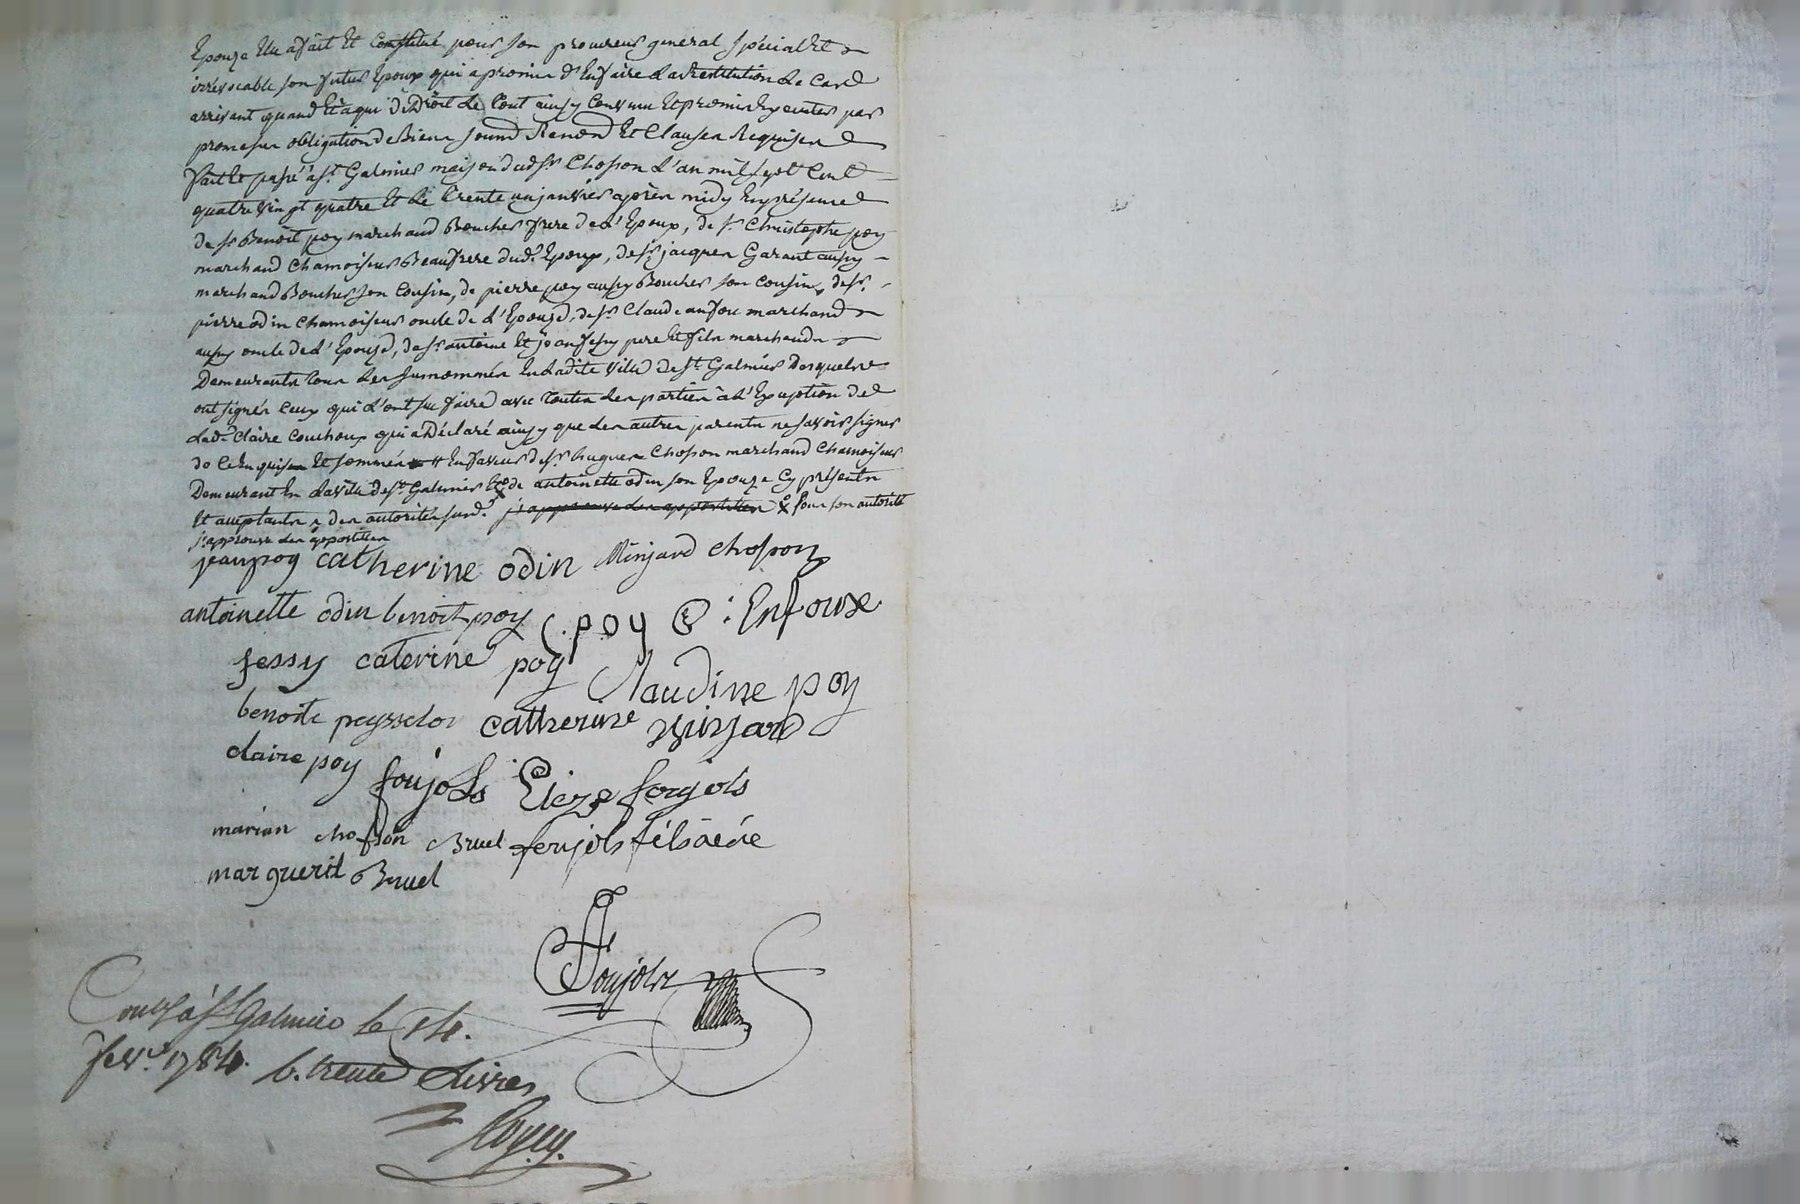 Epouze Elle a fait Et Constitué pour son procureur general spécial Et
irrévocable son futur Epoux qui a promis d'En faire la restitution le Cas
arrivant quand Et à qui de Droit le tout ainsy Convenu Et promis Executer par
promesse obligation de Biens soumd Renond Et Clauses Requises
fait Et passé à st Galmier maison dudsr Chosson L'an mil sept Cent
quatre vingt quatre Et le trente un janvier après midy En présence
de sr Benoit poy marchand Boucher frere de L'Epoux, de sr Christophe poy
marchand Chamoiseur Beaufrere dudt Epoux, de sr jacques Garant aussy
marchand Boucher son Cousin, de pierre poy aussy Boucher son cousin, de sr
pierre odin Chamoiseur oncle de L'Epouze, de sr Claude anfou marchand
aussy oncle de L'Epouze, de sr antoine Et jean fessy pere Et fils marchands
Demeurants tous les surnommés En Ladite ville de st Galmier Desquels
ont signés Ceux qui L'ont su faire avec toutes les parties à L'Exception de
Lade Claire Couchoux qui a Déclaré ainsy que les autres parents ne savoir signer
de Ce Enquis Et sommés # En faveur de sr hugues Chosson marchand Chamoiseur
Demeurant En La ville de st Galmier Et de antoinette odin son Epouze Cy présents
Et acceptants des autorités susd. j'approuve les apostilles x sous son autorité
j'approuve les apostilles
jean poy catherine odin Minjard chosson
antoinette odin benoit poy C. poy C : Enfoux
fessy caterine poy Claudine poy
benoite peysselon catherine Minjard
claire poy foujols Eleze foujols
marion chosson Bruel foujols fils ainé
marguerit Bruel
Foujols
Conlé à st Galmier le 14.
fevr. 1784. b. trente Livres